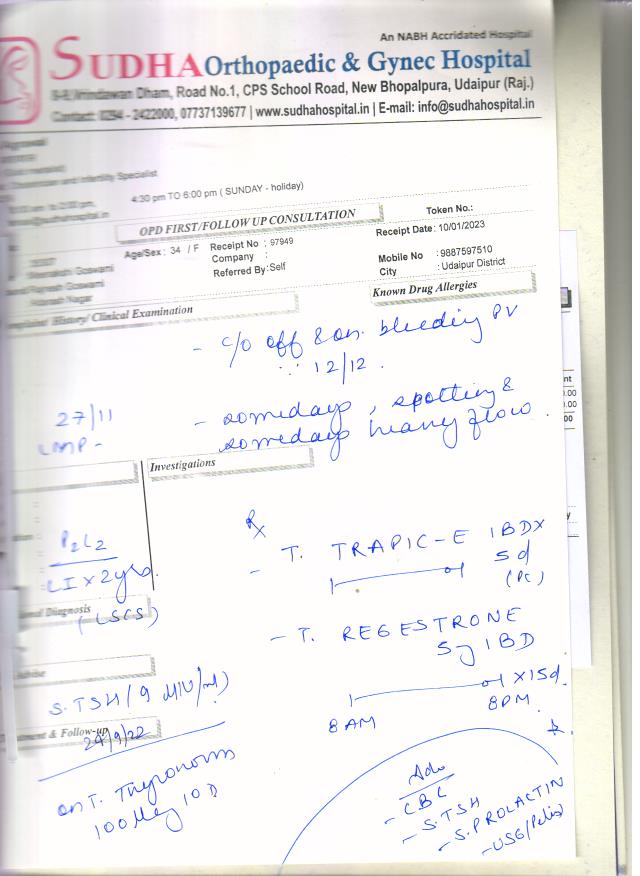 An NABH Accridated Hospital
SUDHA Orthopaedic & Gynec Hospital
Dham, Road No.1, CPS School Road, New Bhopalpura, Udaipur (Raj.)
Contact: 0294 - 2422000, 07737139677 | www.sudhahospital.in | E-mail: info@sudhahospital.in
and Infertility Specialist
4:30 pm TO 6:00 pm ( SUNDAY - holiday)
OPD FIRST/FOLLOW UP CONSULTATION
Token No.:
Receipt Date: 10/01/2023
Age/Sex: 34 / F
Receipt No : 97949
Company :
Referred By: Self
Mobile No : 9887597510
City : Udaipur District
Goswami
Goswami
Nagar
History/ Clinical Examination
Known Drug Allergies
- c/o off & on. bleeding PV
∵ 12/12.
27/11
LMP -
- somedays, spotting &
somedays heavy flow.
Investigations
P2L2
LI x 2yrs.
(LSCS)
Diagnosis
Rx
- T. TRAPIC-E 1BDX
5d
(PC)
- T. REGESTRONE
5g 1BD
x15d.
8AM
8PM
S.TSH (9 MIU/ml)
& Follow-up
24/9/22
on T. Thyronorm
100Mcg 1OD
Adv
- CBC
- S.TSH
- S.PROLACTIN
- USG/Pelvis